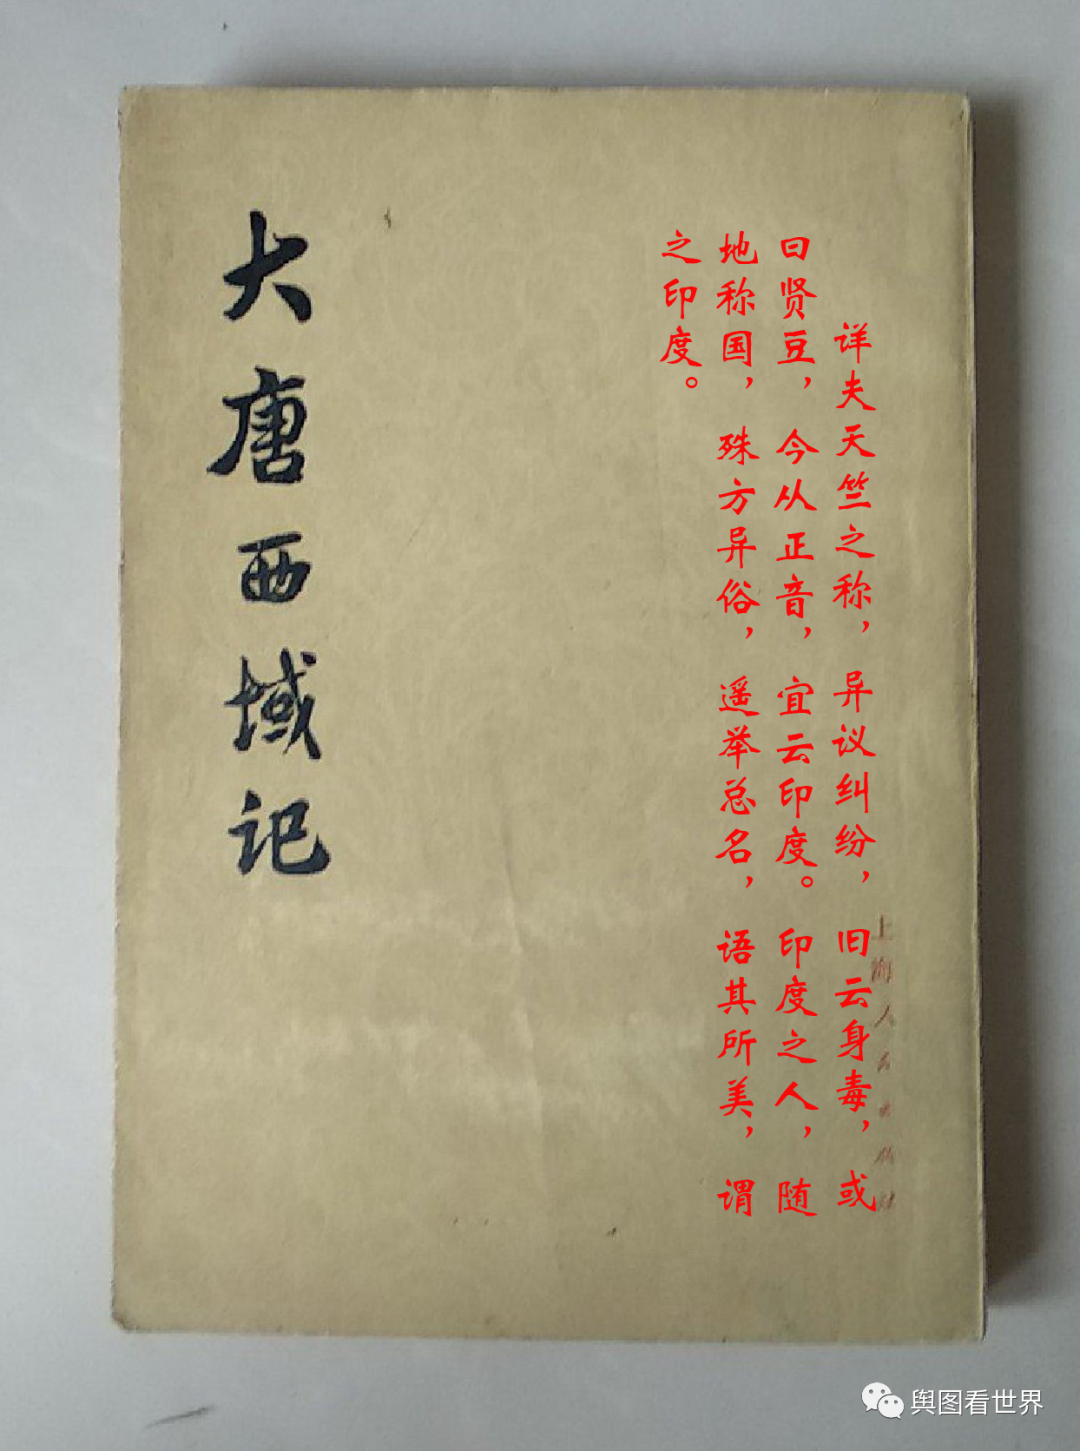 大唐西域记
详夫天竺之称，异议纠纷，旧云身毒，或
曰贤豆，今从正音，宜云印度。印度之人，随
地称国，殊方异俗，遥举总名，语其所美，谓
之印度。
上海人民出版社
舆图看世界